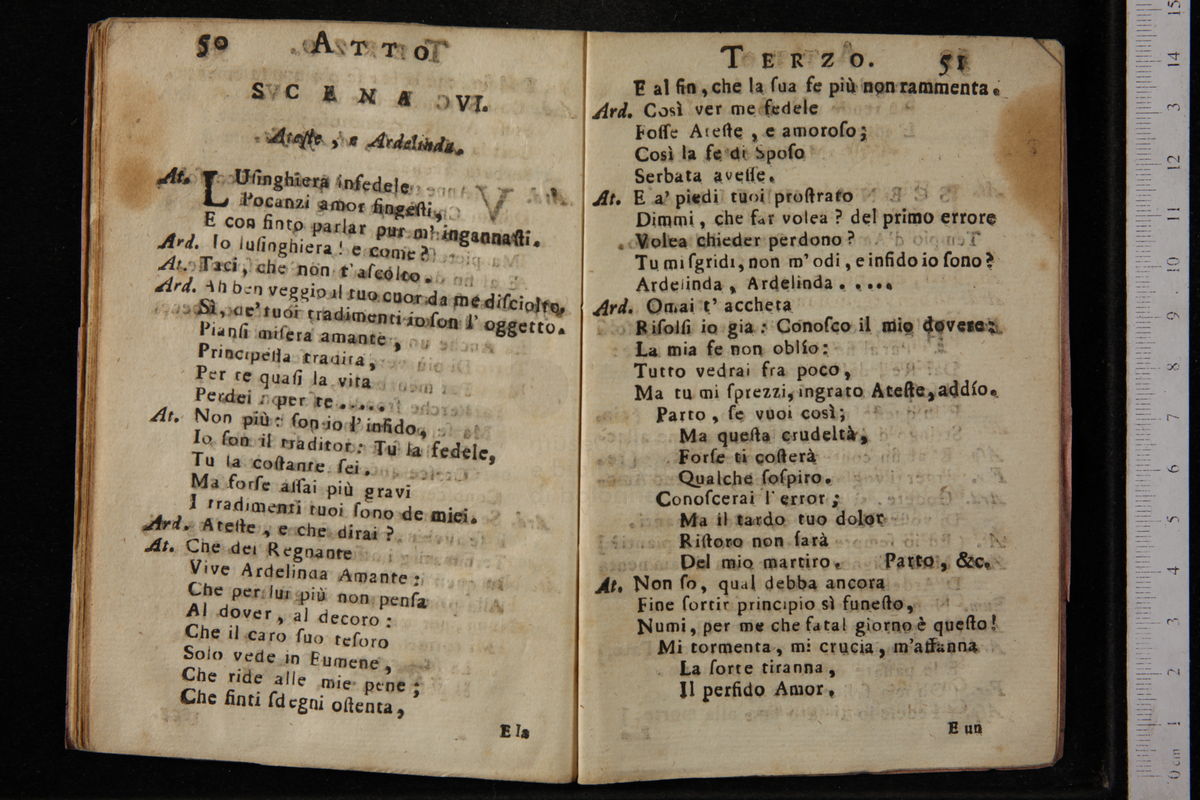 50 ATTO
SCENA VI.
Ateſte, e Ardelinda.
At. LUſinghiera infedele
Pocanzi amor fingeſti,
E con finto parlar pur m'ingannaſti.
Ard. Io luſinghiera! e come?
At. Taci, che non t'aſcolto.
Ard. Ah ben veggio il tuo cuor da me diſciolto,
Sì, de' tuoi tradimenti io ſon l' oggetto.
Pianſi miſera amante,
Principeſſa tradita,
Per te quaſi la vita
Perdei: per te.....
At. Non più: ſon io l'infido,
Io ſon il traditor: Tu la fedele,
Tu la coſtante ſei.
Ma forſe aſſai più gravi
I tradimenti tuoi ſono de miei.
Ard. Ateſte, e che dirai?
At. Che del Regnante
Vive Ardelinda Amante:
Che per lui più non penſa
Al dover, al decoro:
Che il caro ſuo teſoro
Solo vede in Eumene,
Che ride alle mie pene;
Che finti ſdegni oſtenta,
E la
TERZO. 51
E al fin, che la ſua fe più non rammenta.
Ard. Così ver me fedele
Foſſe Ateſte, e amoroſo;
Così la fe di Spoſo
Serbata aveſſe.
At. E a' piedi tuoi proſtrato
Dimmi, che far volea? del primo errore
Volea chieder perdono?
Tu mi ſgridi, non m'odi, e infido io ſono?
Ardelinda, Ardelinda.....
Ard. Omai t' accheta
Riſolſi io gia: Conoſco il mio dovere;
La mia fe non oblío:
Tutto vedrai fra poco,
Ma tu mi ſprezzi, ingrato Ateſte, addío.
Parto, ſe vuoi così;
Ma queſta crudeltà,
Forſe ti coſterà
Qualche ſoſpiro.
Conoſcerai l'error;
Ma il tardo tuo dolor
Riſtoro non ſarà
Del mio martiro. Parto, &c.
At. Non ſo, qual debba ancora
Fine ſortir principio sì funeſto,
Numi, per me che fatal giorno è queſto!
Mi tormenta, mi crucia, m'affanna
La ſorte tiranna,
Il perfido Amor.
E un
0 cm 1 2 3 4 5 6 7 8 9 10 11 12 13 14 15